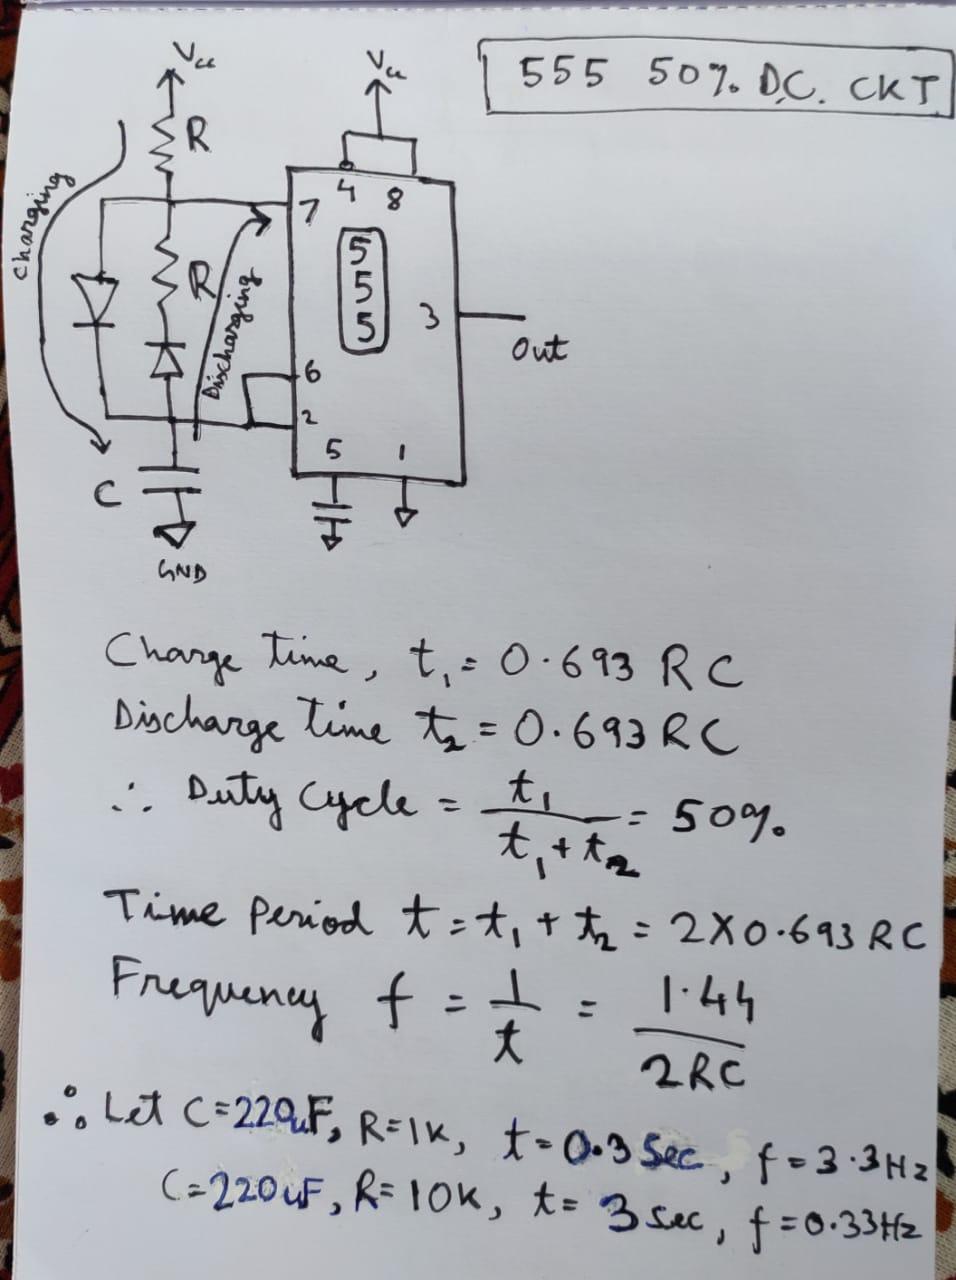 555 50% D.C. CKT
Vcc
Vcc
R
Charging
R
Discharging
4 8
7
555
3
Out
6
2
5 1
C
GND
Charge time, t₁ = 0.693 RC
Discharge time t₂ = 0.693 RC
∴ Duty Cycle = t₁ / (t₁ + t₂) = 50%
Time Period t = t₁ + t₂ = 2X0.693 RC
Frequency f = 1 / t = 1.44 / 2RC
∴ Let C=220uF, R=1K, t=0.3 Sec, f=3.3Hz
C=220uF, R=10K, t= 3 sec, f=0.33Hz